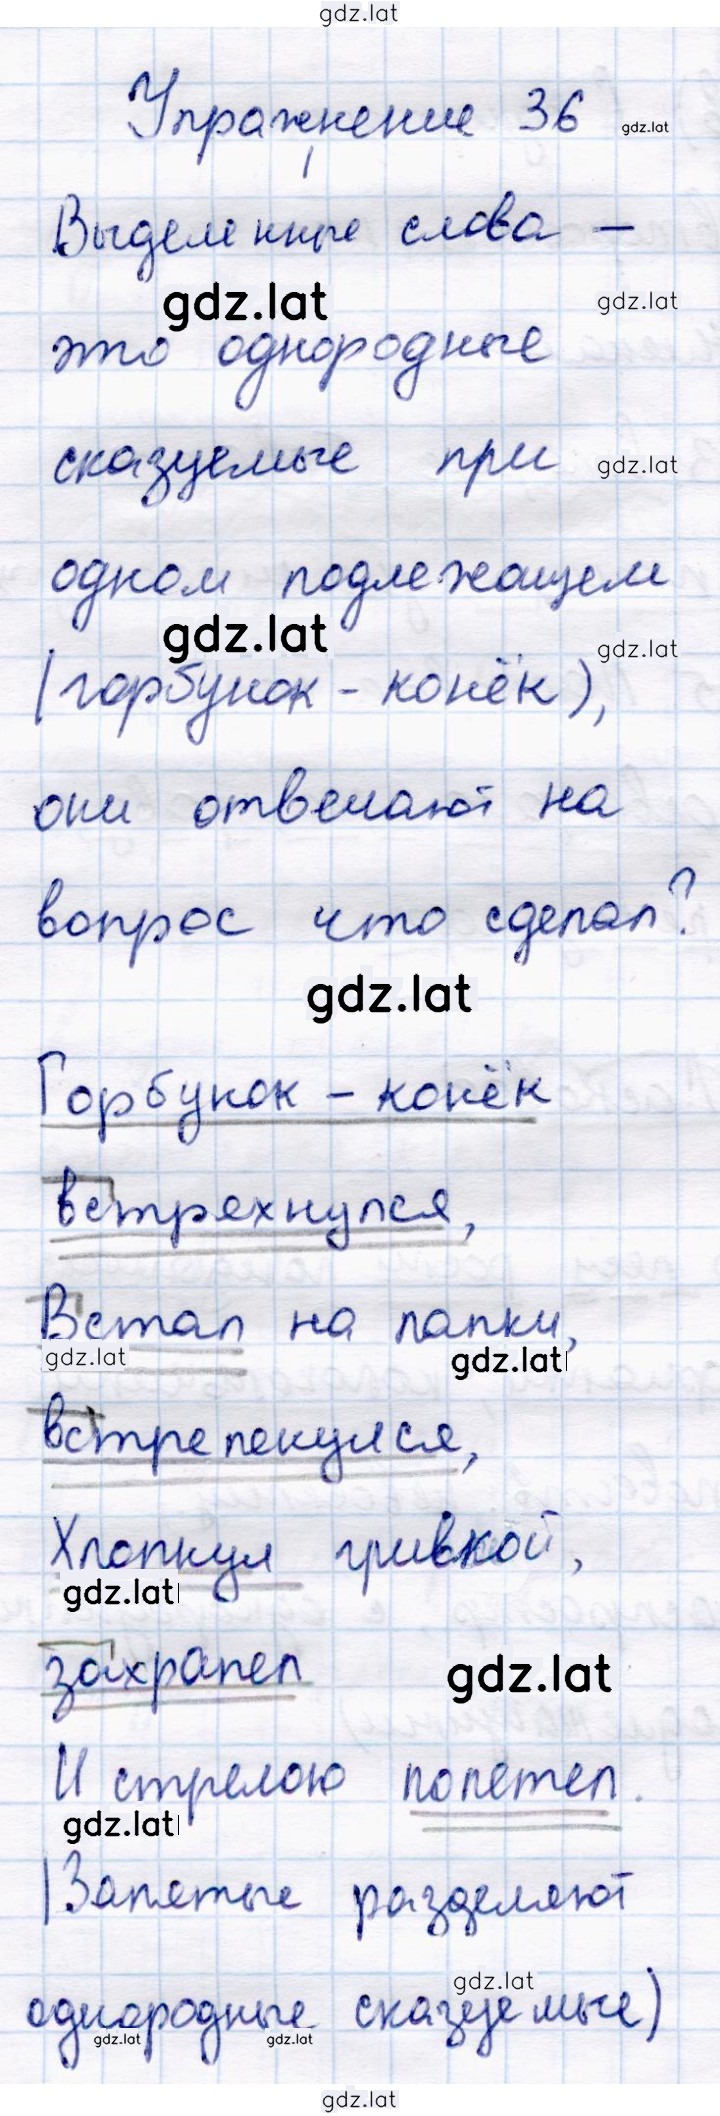 gdz.lat
Упражнение 36
gdz.lat
Выделенные слова –
gdz.lat gdz.lat
это однородные
сказуемые при
gdz.lat
одном подлежащем
gdz.lat gdz.lat
(горбунок - конёк),
они отвечают на
вопрос что сделал?
gdz.lat
Горбунок - конёк
встряхнулся,
Встал на лапки,
gdz.lat gdz.lat
встрепенулся,
Хлопнул гривкой,
gdz.lat
захрапел
gdz.lat
И стрелою полетел.
gdz.lat
(Запятые разделяют
gdz.lat
однородные сказуемые)
gdz.lat gdz.lat
gdz.lat